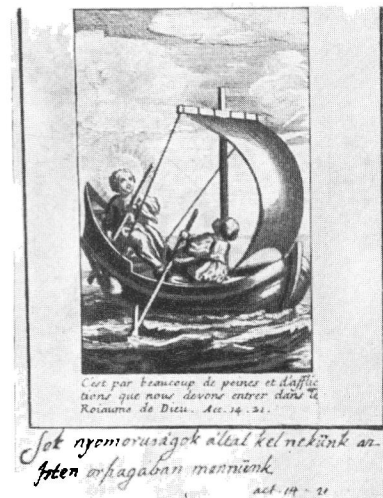 C'est par beaucoup de peines et d'afflic
tions que nous devons entrer dans le
Roiaume de Dieu. Act. 14. 21.
Sok nyomoruságok által kel nekünk az
Isten orſzagaban mennünk
act. 14. 21